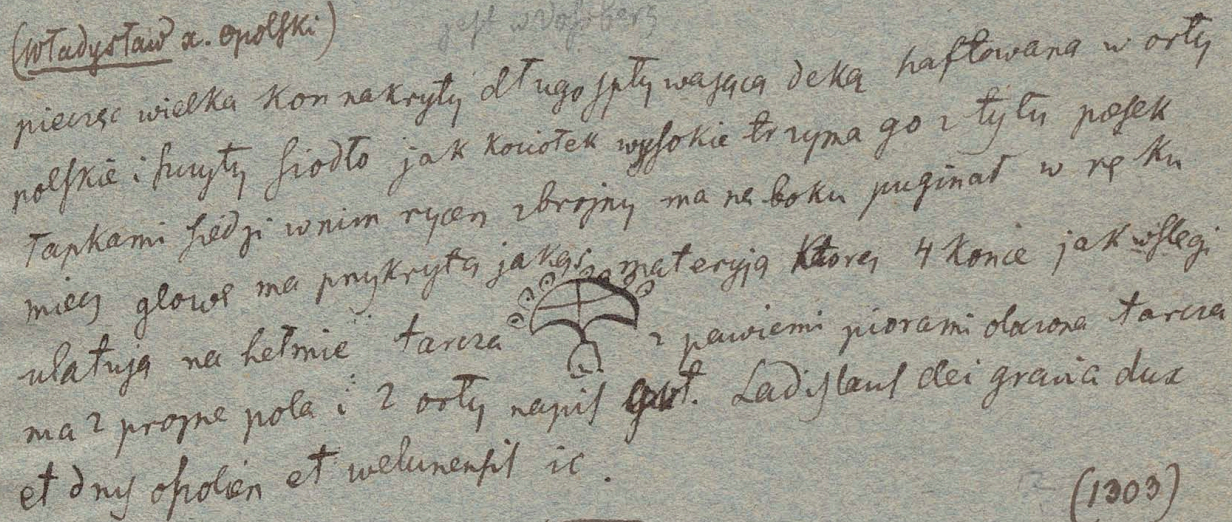 (Władysław x. opolski)
pieczęc wielka kon nakryty długo spływającą deką haftowaną w orły
polskie i siodło jak kociołek wysokie trzyma go z tyłu piesek
łapkami siedzi w nim rycerz zbrojny ma na boku puginał w ręku
miecz głowę ma przykrytą jakąś materyją ktorey 4 konce jak wstęgi
ulatują na hełmie tarcza z pawiemi piorami otoczona tarcza
ma 2 prozne pola i 2 orły napis Ladislaus dei gracia dux
et dns opolien et welunensis ic.
(1303)